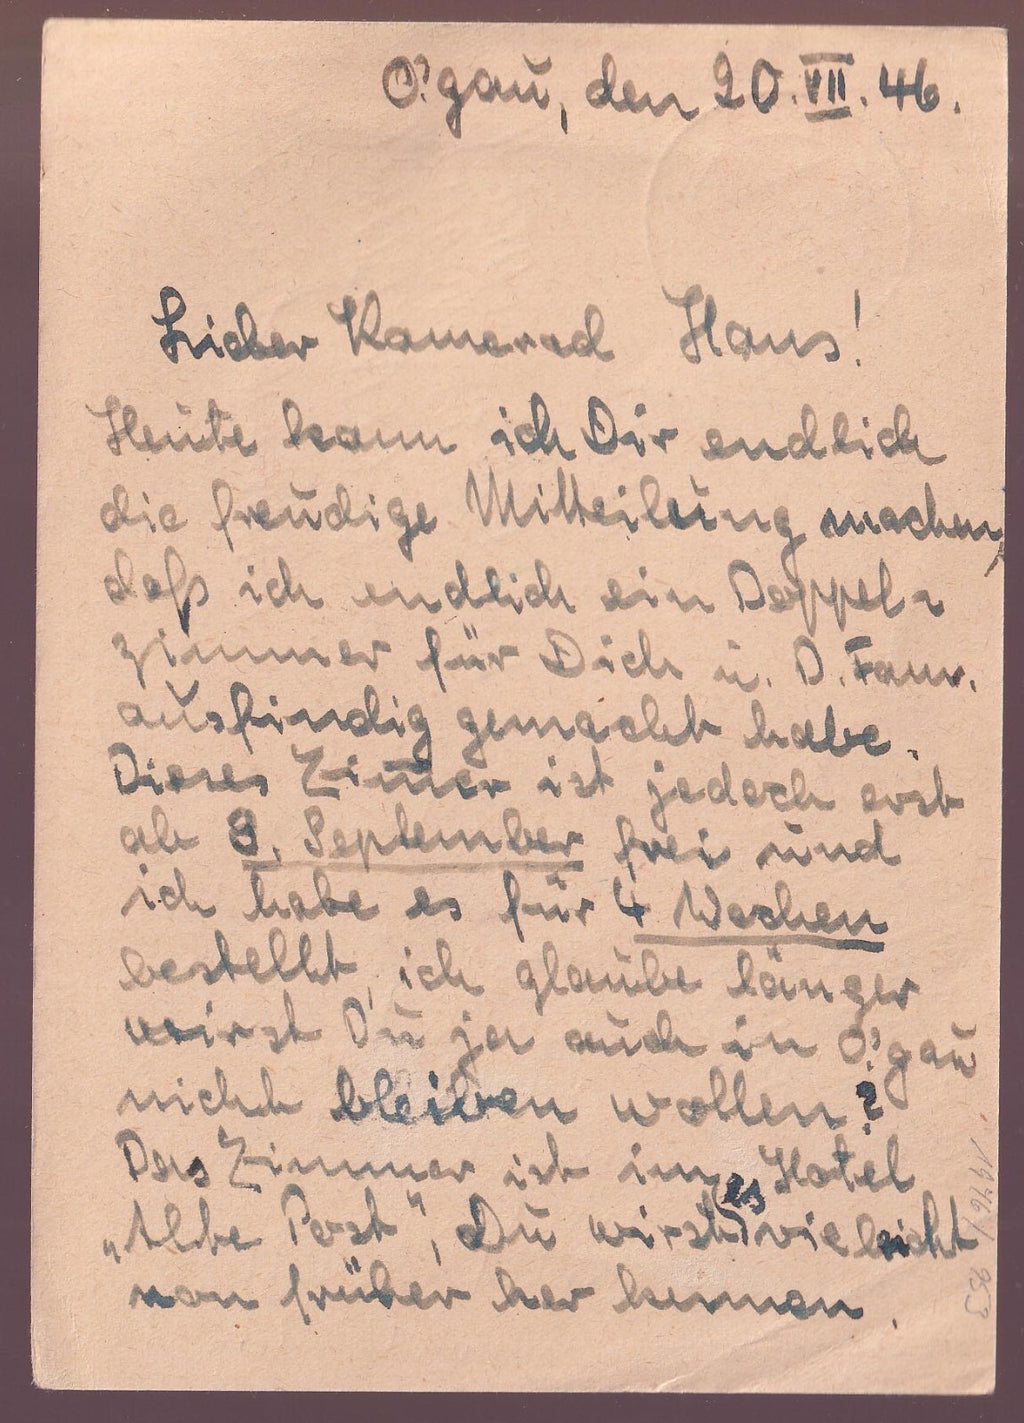 O'gau, den 20. VII. 46.
Lieber Kamerad Hans!
Heute kann ich Dir endlich
die freudige Mitteilung machen,
daß ich endlich ein Doppel-
zimmer für Dich u. D. Fam.
ausfindig gemacht habe.
Dieses Zimmer ist jedoch erst
ab 9. September frei und
ich habe es für 4 Wochen
bestellt, ich glaube länger
wirst Du ja auch in O'gau
nicht bleiben wollen?
Das Zimmer ist im Hotel
„Alte Post“, Du wirst es vieleicht
von früher her kennen.
1946/953